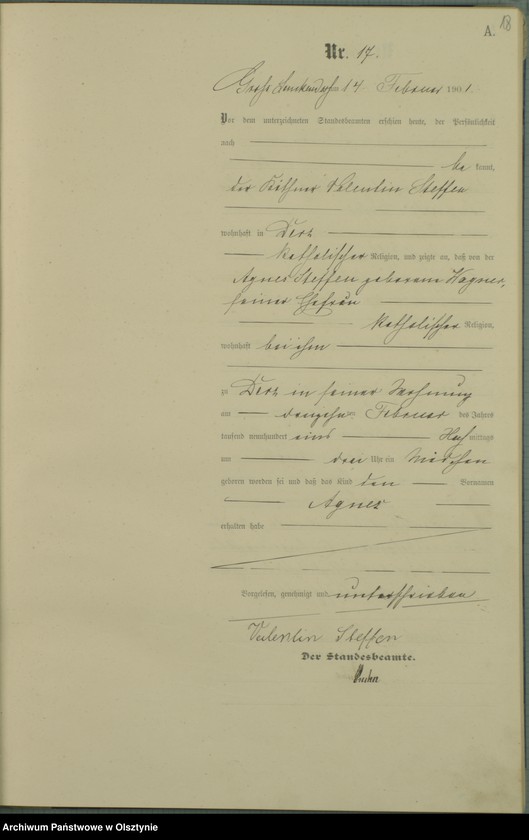 A.
18
Nr. 17.
am 14 Februar 1901.
Vor dem unterzeichneten Standesbeamten erschien heute, der Persönlichkeit
nach
be kannt,
der Käthner Valentin Steffen
wohnhaft in Derz
katholischer Religion, und zeigte an, daß von der
Agnes Steffen geborenen Wagner,
seiner Ehefrau
katholischer Religion,
wohnhaft bei ihm
zu Derz in seiner Wohnung
am ten Februar des Jahres
tausend neunhundert eins Nach mittags
um drei Uhr ein Mädchen
geboren worden sei und daß das Kind den Vornamen
Agnes
erhalten habe
Vorgelesen, genehmigt und unterschrieben
Valentin Steffen
Der Standesbeamte.
Archiwum Państwowe w Olsztynie